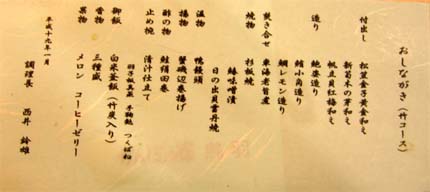 おしながき（竹コース）
付出し 松茸金子黄食和え
新筍木の芽和え
帆立貝紅梅和え
造り 鮑姿造り
鮪小角造り
鯛レモン造り
焚き合せ 東海老旨煮
焼物 杉板焼
鰆味噌漬
日の出貝雲丹焼
温物 鴨饅頭
揚物 蟹磯辺巻揚げ
酢の物 鮭絹田巻
止め椀 清汁仕立て
羽子板真蒸 手鞠麩 つくばね
御飯 白米釜飯（竹炭入り）
香物 三種盛
果物 メロン コーヒーゼリー
平成十九年一月
調理長 西井